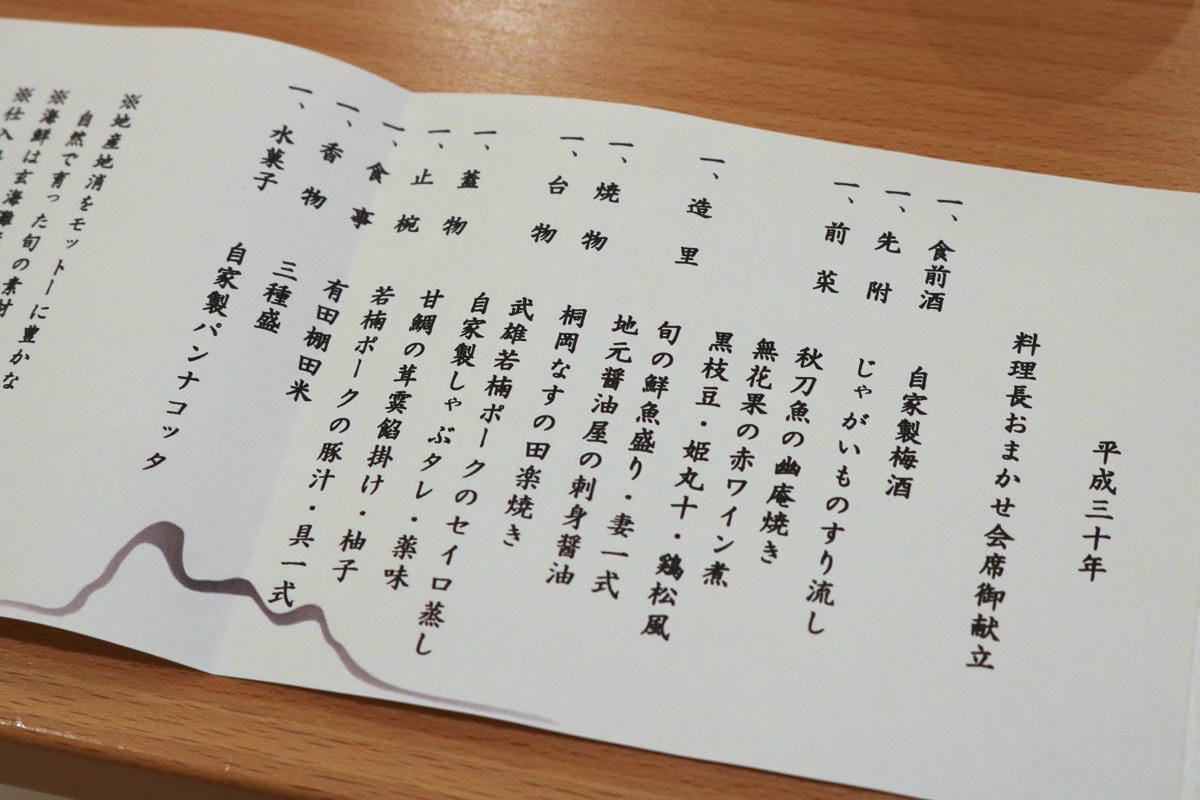 平成三十年
料理長おまかせ会席御献立
一、食前酒 自家製梅酒
一、先附 じゃがいものすり流し
一、前菜 秋刀魚の幽庵焼き
無花果の赤ワイン煮
黒枝豆・姫丸十・鶏松風
一、造里 旬の鮮魚盛り・妻一式
地元醤油屋の刺身醤油
一、焼物 桐岡なすの田楽焼き
一、台物 武雄若楠ポークのセイロ蒸し
自家製しゃぶタレ・薬味
一、蓋物 甘鯛の茸霙餡掛け・柚子
一、止椀 若楠ポークの豚汁・具一式
一、食事 有田棚田米
一、香物 三種盛
一、水菓子 自家製パンナコッタ
※地産地消をモットーに豊かな
自然で育った旬の素材
※海鮮は玄海灘
※仕入